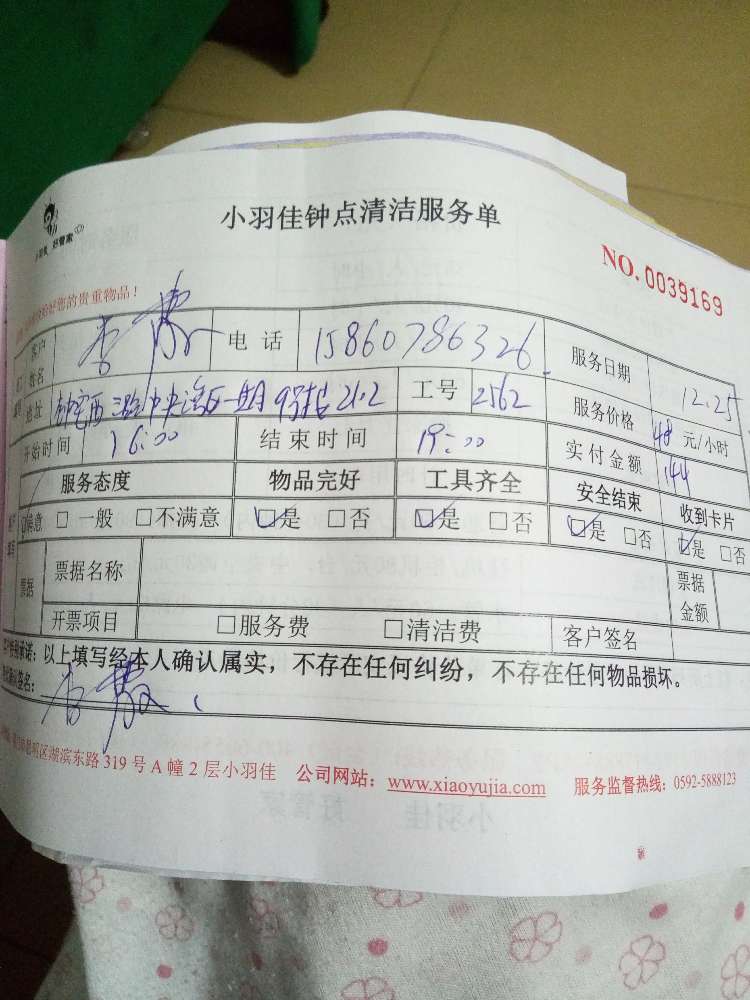 小羽佳 好管家
小羽佳钟点清洁服务单
NO.0039169
您的贵重物品！
客户姓名 李 电话 15860786326 服务日期 12.25
地址 钟宅西三路中央湾区一期9号楼2102 工号 2562 服务价格 48 元/小时
开始时间 16:00 结束时间 19:00 实付金额 144
服务态度 物品完好 工具齐全 安全结束 收到卡片
☑满意 □一般 □不满意 ☑是 □否 ☑是 □否 ☑是 □否 ☑是 □否
票据 票据名称 票据金额
开票项目 □服务费 □清洁费 客户签名
承诺：以上填写经本人确认属实，不存在任何纠纷，不存在任何物品损坏。
签名：李
明区湖滨东路 319 号 A 幢 2 层小羽佳 公司网站：www.xiaoyujia.com 服务监督热线：0592-5888123